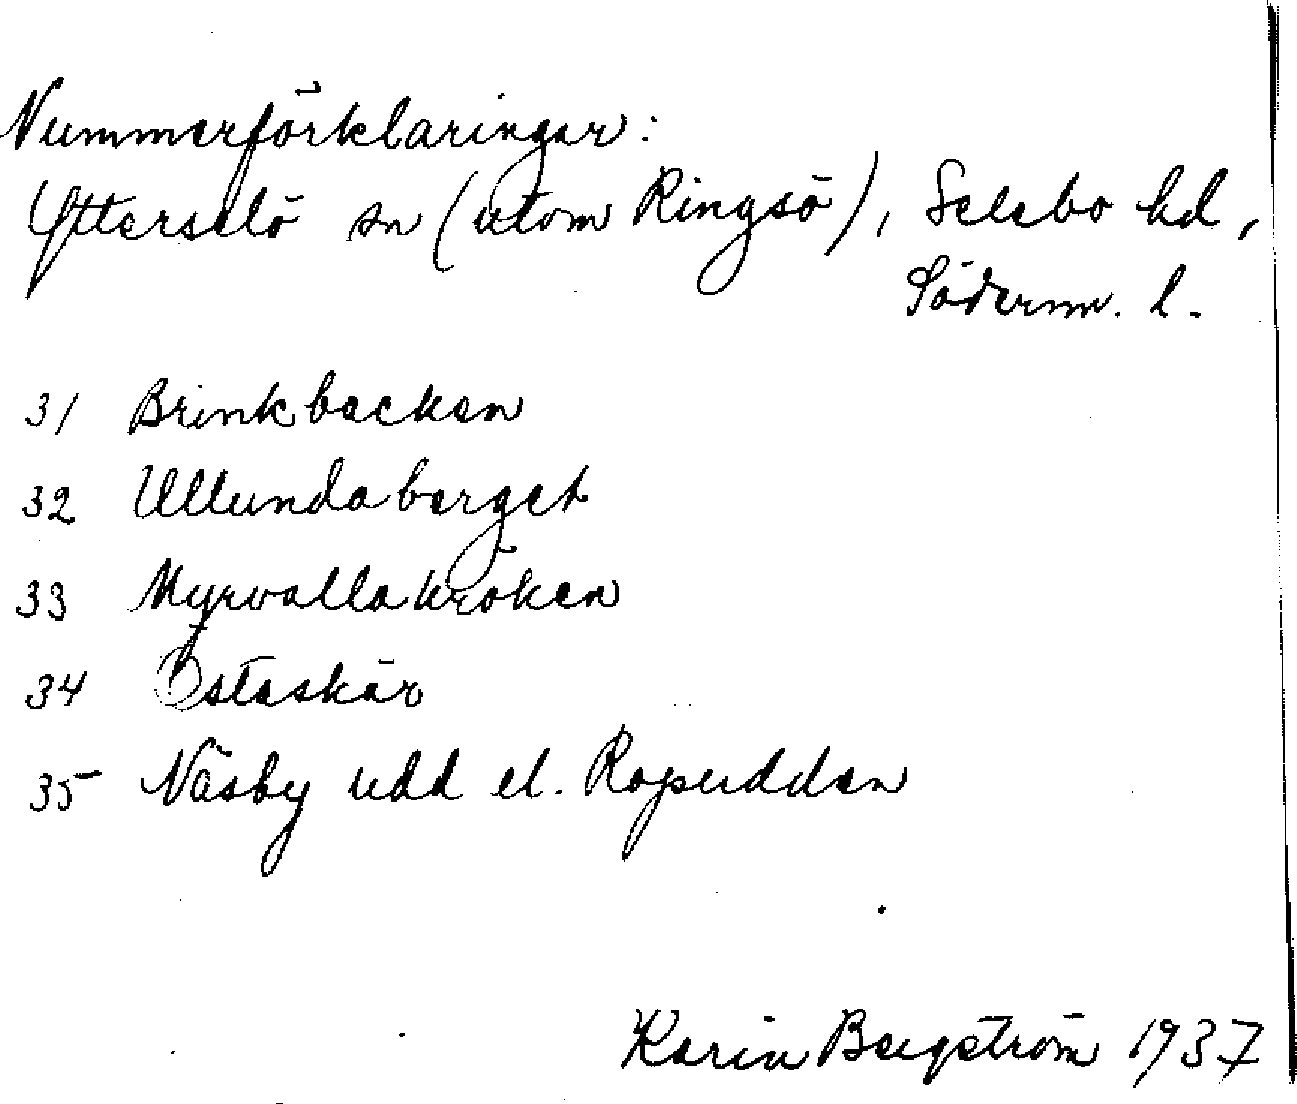 Nummerförklaringar:
Ytterselö sn (utom Ringsö), Selebo hd,
Söderm. l.
31 Brinkbacken
32 Ullundaberget
33 Myrvallakröken
34 Östaskär
35 Näsby udd el. Ropudden
Karin Bergström 1937